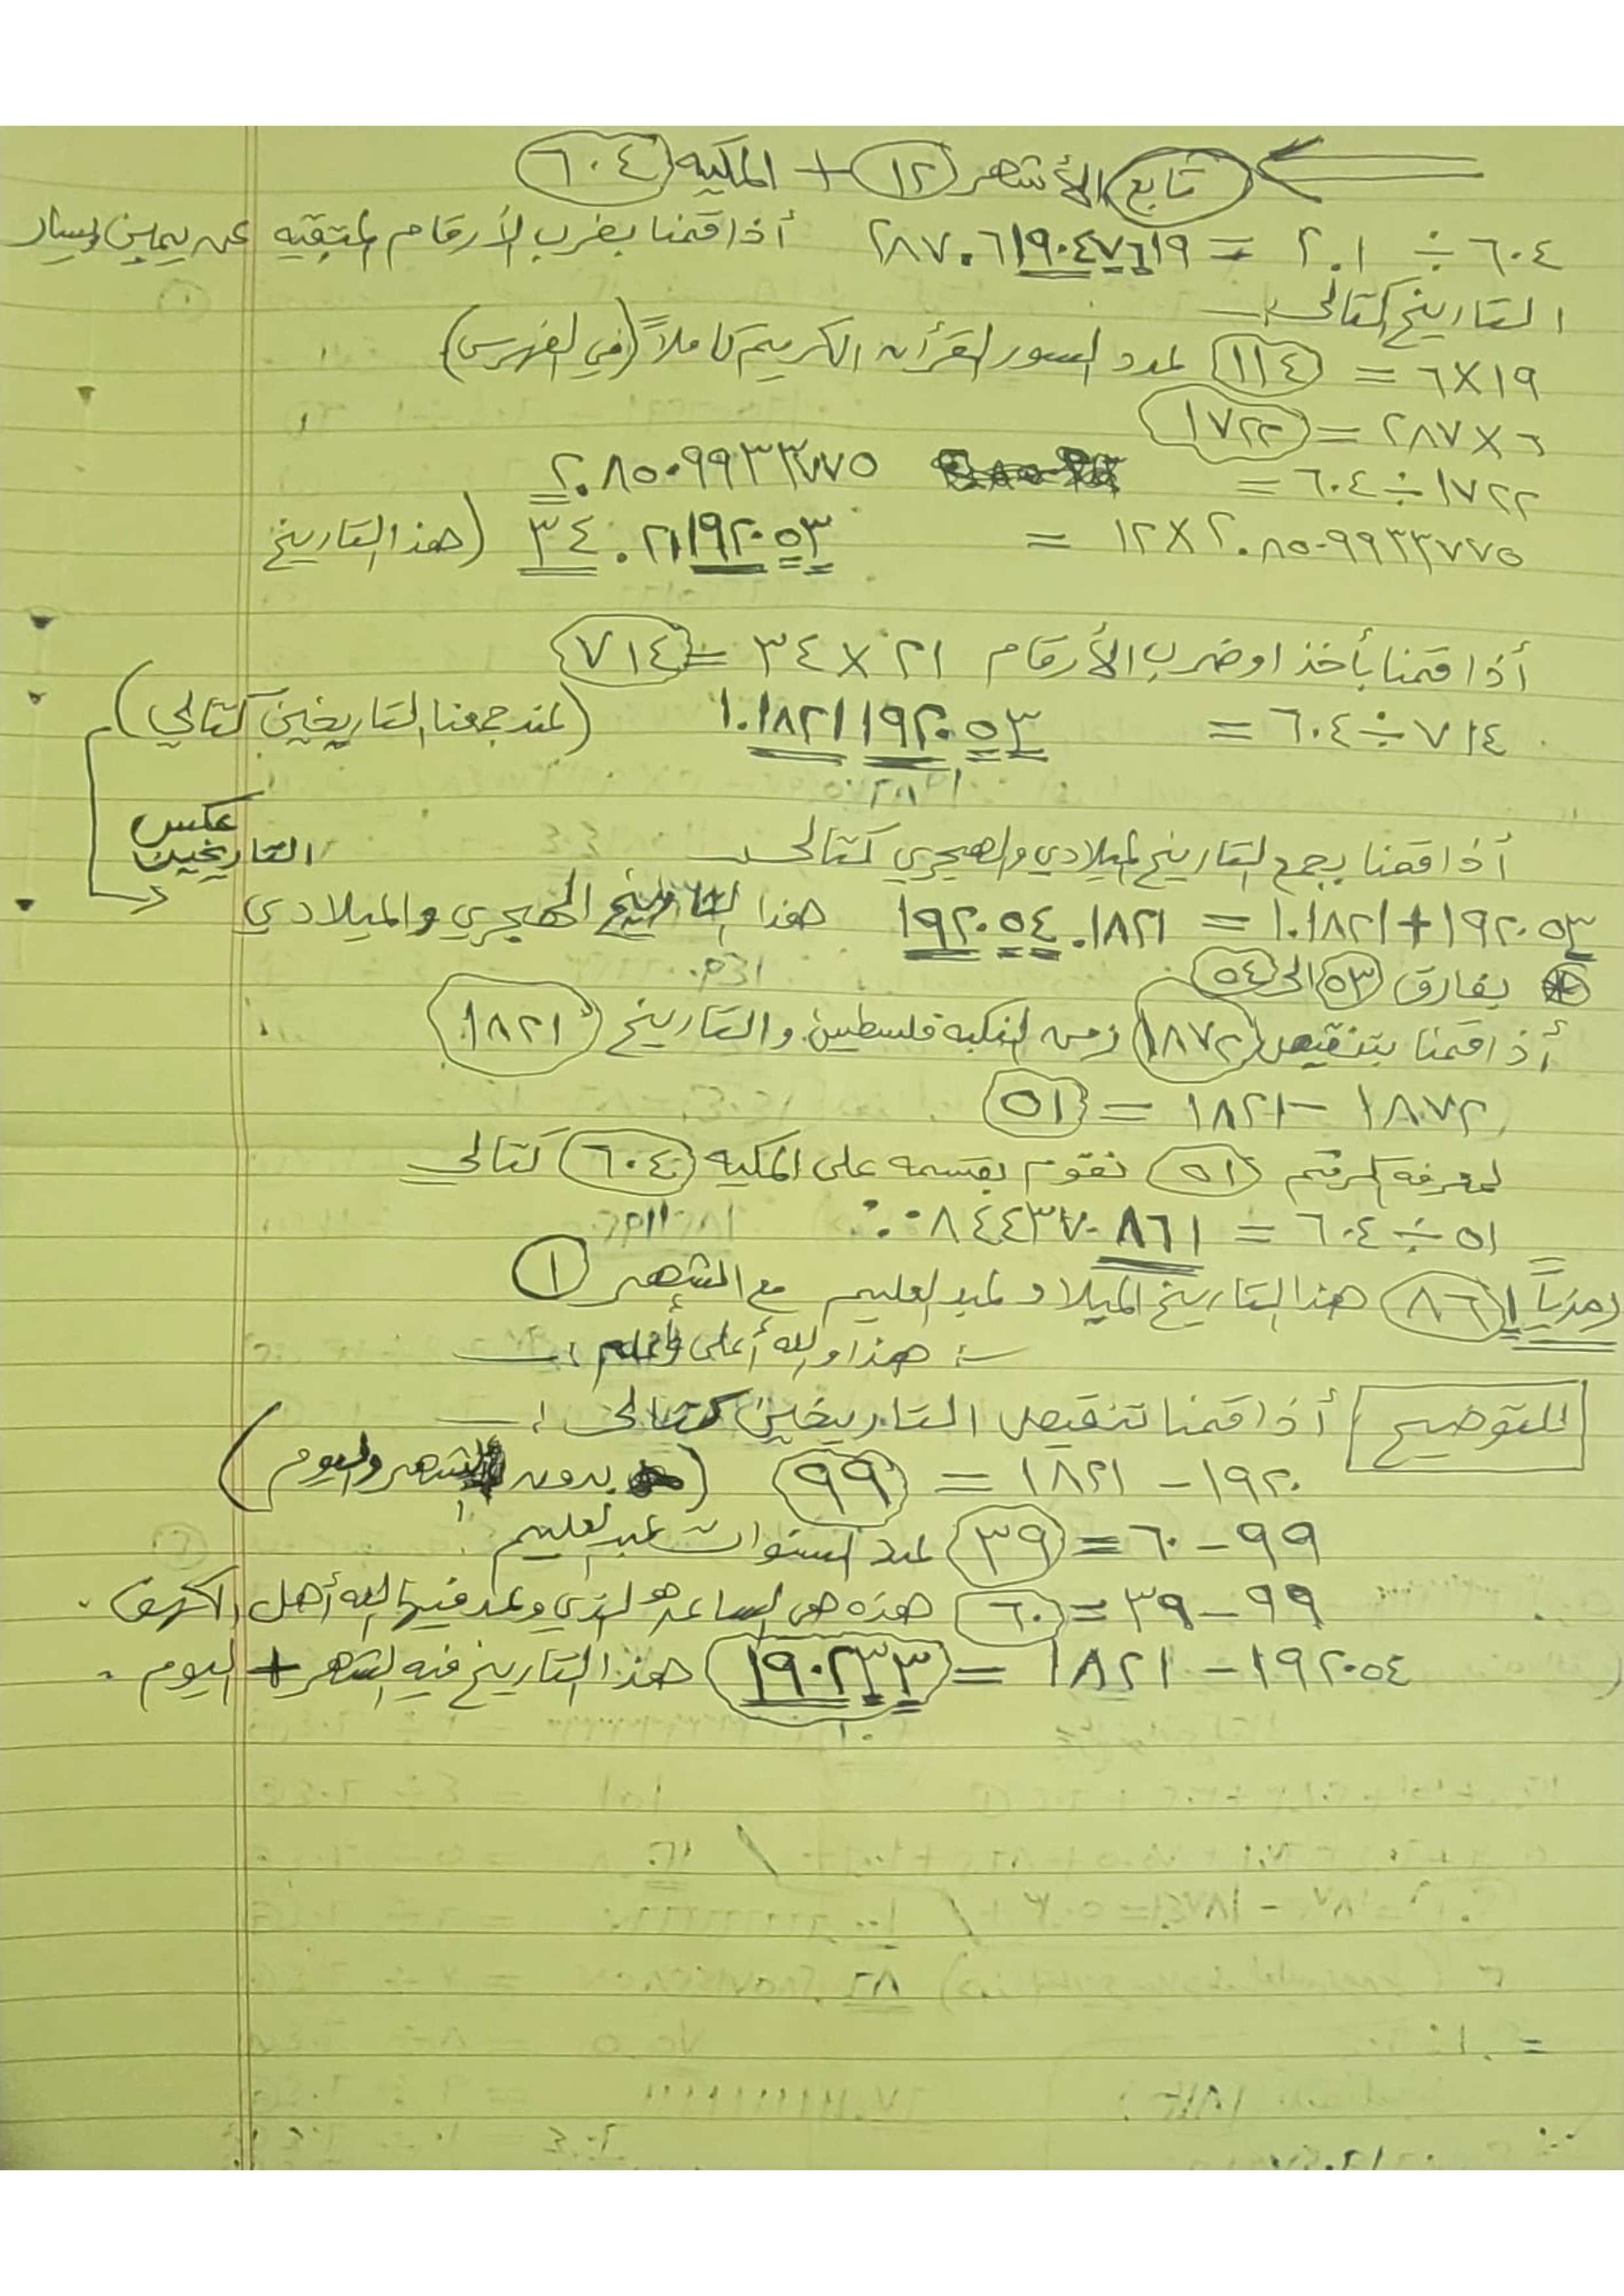 تابع الأشهر ١٢ + المكيه ٦٠٤
٦٠٤ ÷ ٢.١ = ٢٨٧.٦١٩٠٤٧٦١٩ أذا قمنا بضرب الأرقام المتبقيه عن يمين ويسار
التاريخ كتالي
١٩×٦ = ١١٤ عدد السور القرأن الكريم كاملاً (في الفهرس)
٦×٢٨٧ = ١٧٢٢
١٧٢٢÷٦٠٤ = ٢.٨٥٠٩٩٣٣٧٧٥
٢.٨٥٠٩٩٣٣٧٧٥×١٢ = ٣٤.٢١١٩٢٠٥٣ (هذا التاريخ
أذا قمنا بأخذ او ضرب الأرقام ٢١×٣٤ = ٧١٤
٧١٤÷٦٠٤ = ١.١٨٢١١٩٢٠٥٣ (عند جمعنا التاريخين كتالي)
أذا قمنا بجمع التاريخ الميلادي والهجري كتالي
عكس
التاريخين
١٩٢٠٥٣+١.١٨٢١ = ١٩٢٠٥٤.١٨٢١ هذا التاريخ الهجري والميلادي
بفارق ٥٣ الى ٥٤
أذا قمنا بتنقيص ١٨٧٢ زمن النكبه فلسطين والتاريخ ١٨٢١
١٨٧٢ – ١٨٢١ = ٥١
لمعرفه الرقم ٥١ نقوم بقسمه على المكيه ٦٠٤ كتالي
٥١ ÷ ٦٠٤ = ٠.٠٨٤٤٣٧٠٨٦١
رمزياً ٨٦١ هذا التاريخ الميلاد عبد العليم مع الشهر ١
هذا والله أعلى وأعلم
للتوضيح أذا قمنا تنقيص التاريخين كتالي :
١٩٢٠ – ١٨٢١ = ٩٩ (بدون الشهر واليوم)
٩٩ – ٦٠ = ٣٩ عدد السنوات عبد العليم
٩٩ – ٣٩ = ٦٠ هذه هي الساعه الذي وعد فيها الله أهل الكهف .
١٩٢٠٥٤ – ١٨٢١ = ١٩٠٢٣٣ هذا التاريخ فيه الشهر + اليوم .